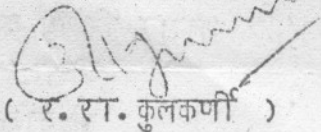 ( र. रा. कुलकर्णी )